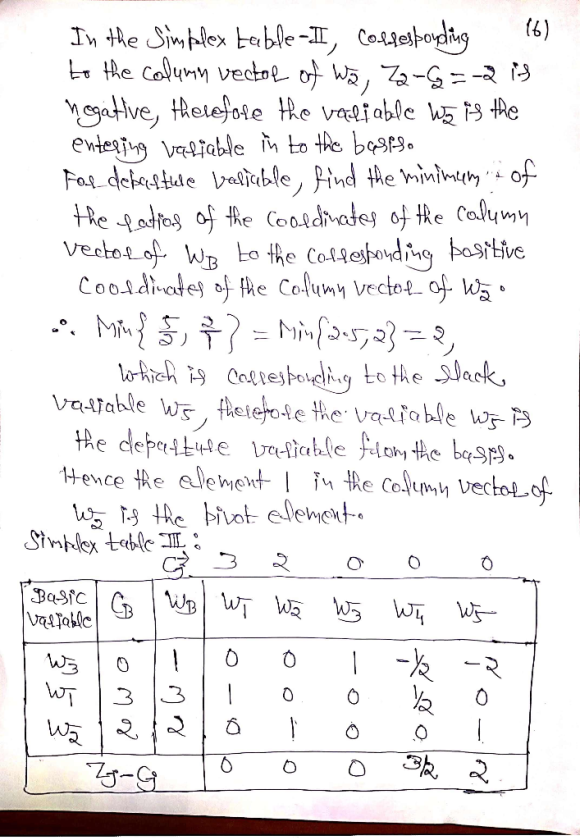 (6)
In the Simplex table-II, Corresponding
to the column vector of W2, Z2-C2 = -2 is
negative, therefore the variable W2 is the
entering variable in to the basis.
For departure variable, find the minimum of
the ratios of the Coordinates of the Column
vector of WB to the corresponding positive
Coordinates of the Column vector of W2.
∴ Min{ 5/2, 2/1 } = Min{2.5, 2} = 2,
which is corresponding to the slack
variable W5, therefore the variable W5 is
the departure variable from the basis.
Hence the element 1 in the column vector of
W2 is the pivot element.
Simplex table III :
Cj→ 3 2 0 0 0
Basic Variable CB WB W1 W2 W3 W4 W5
W3 0 1 0 0 1 -1/2 -2
W1 3 3 1 0 0 1/2 0
W2 2 2 0 1 0 0 1
Zj-Cj 0 0 0 3/2 2